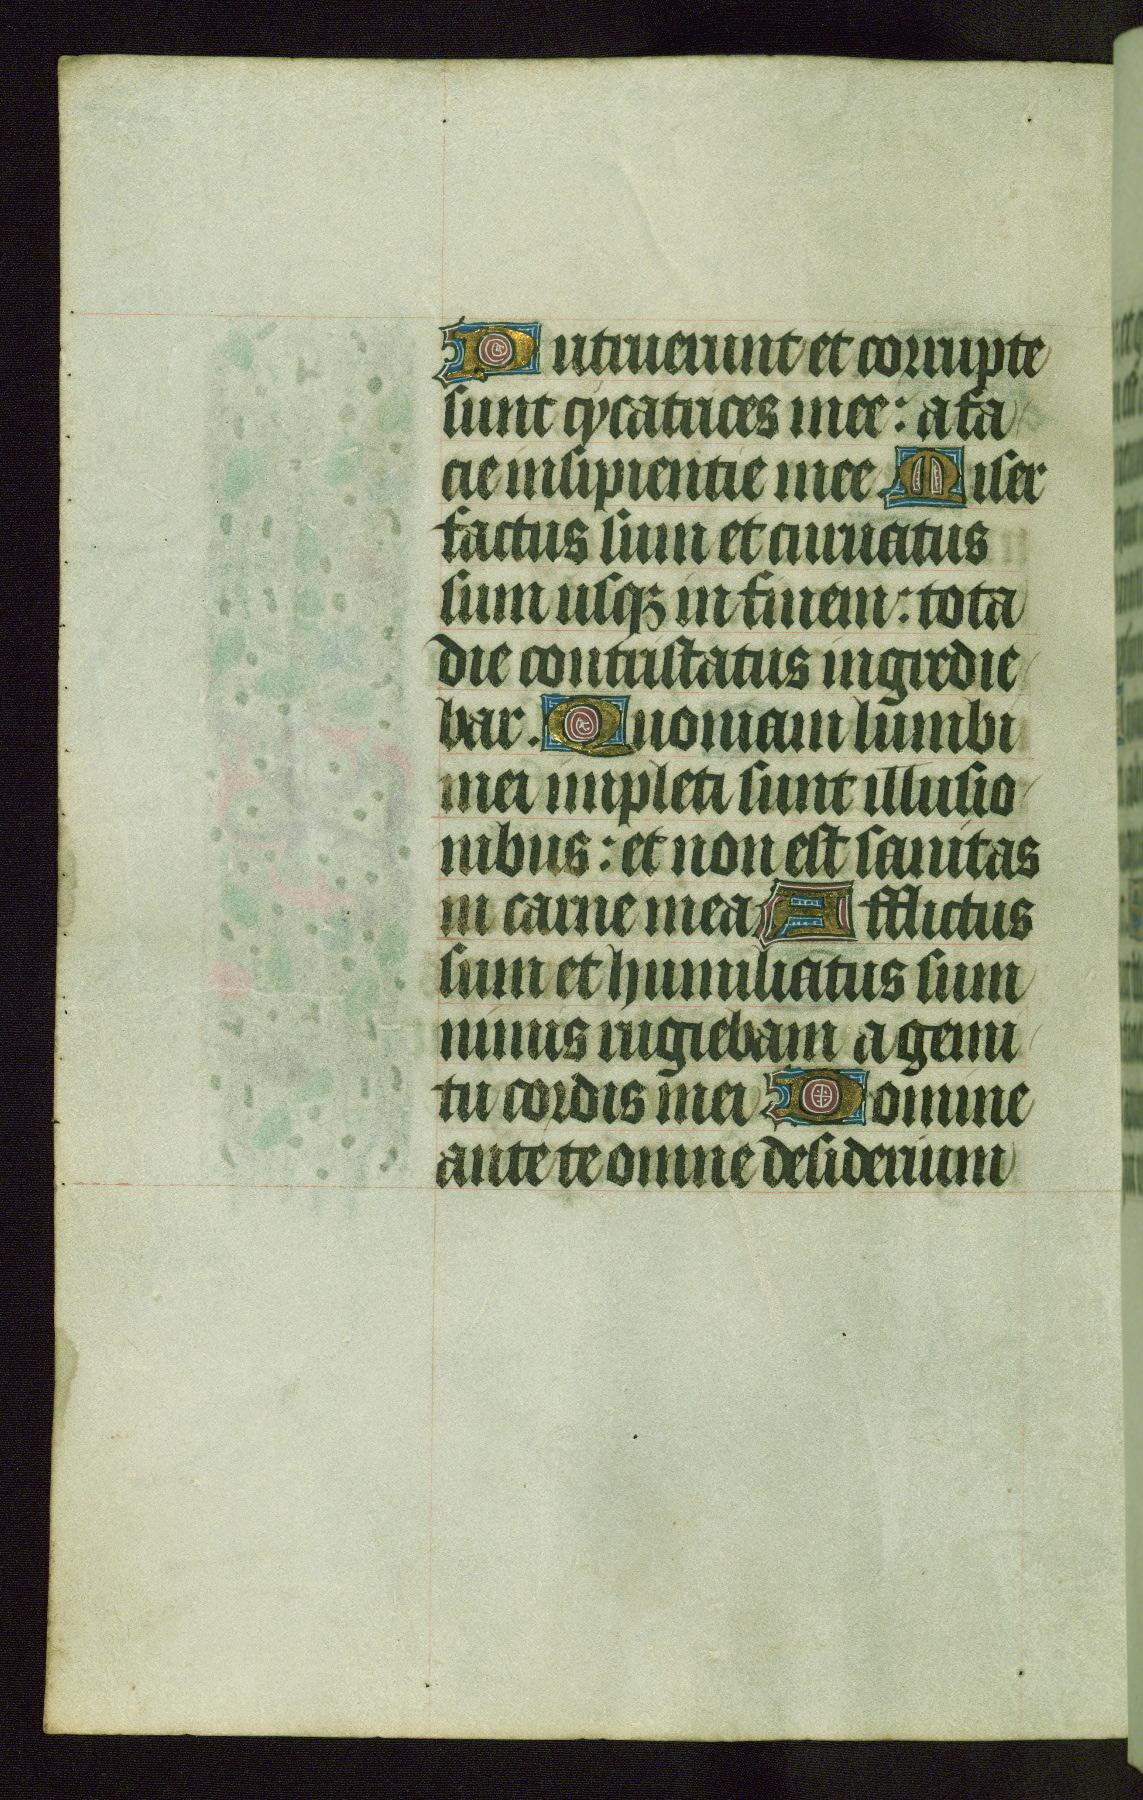 Putruerunt et corrupte
sunt cycatrices mee: a fa
cie insipientie mee. Miser
factus sum et curuatus
sum usqꝫ in finem: tota
die contristatus ingredie
bar. Quoniam lumbi
mei impleti sunt illusio
nibus: et non est sanitas
in carne mea. Afflictus
sum et humiliatus sum
nimis rugiebam a gemi
tu cordis mei Domine
ante te omne desiderium